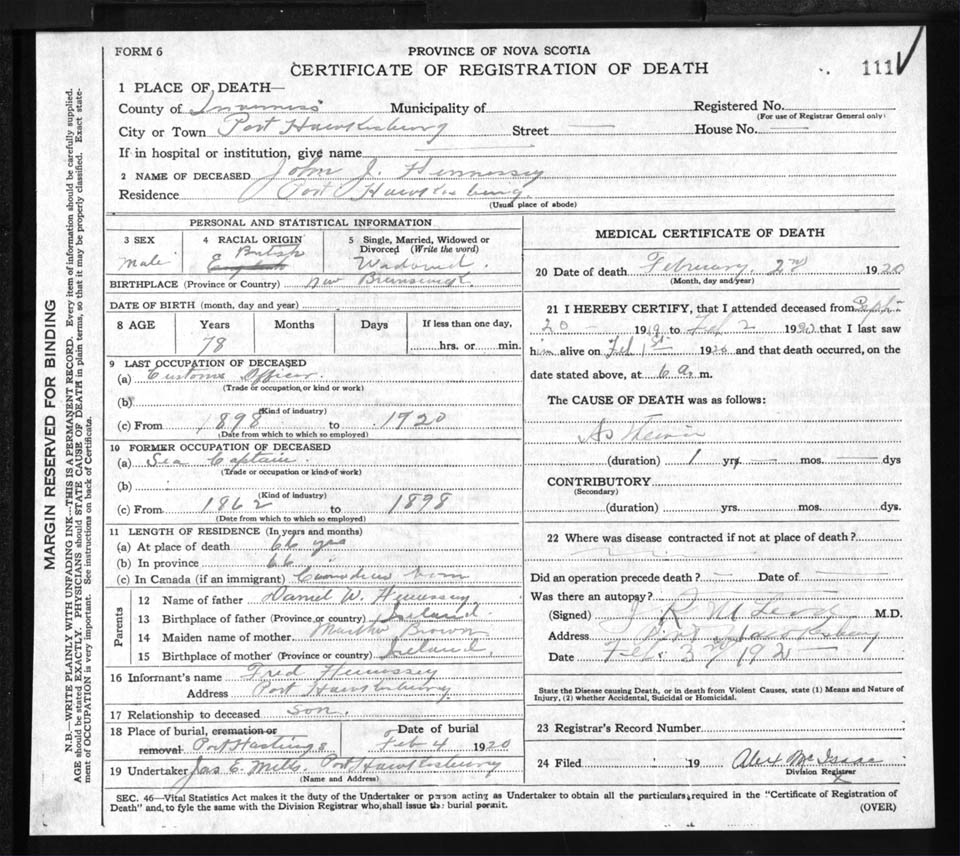 FORM 6
PROVINCE OF NOVA SCOTIA
CERTIFICATE OF REGISTRATION OF DEATH
111
1 PLACE OF DEATH—
County of Inverness Municipality of Registered No.
(For use of Registrar General only)
City or Town Port Hawkesbury Street — House No. —
If in hospital or institution, give name —
2 NAME OF DECEASED John J. Hennessey
Residence Port Hawkesbury
(Usual place of abode)
PERSONAL AND STATISTICAL INFORMATION
3 SEX
Male
4 RACIAL ORIGIN
British
English
5 Single, Married, Widowed or Divorced (Write the word)
Widowed.
BIRTHPLACE (Province or Country) New Brunswick
DATE OF BIRTH (month, day and year)
8 AGE Years Months Days If less than one day,
78 hrs. or min.
9 LAST OCCUPATION OF DECEASED
(a) Customs Officer.
(Trade or occupation, or kind or work)
(b)
(Kind of industry)
(c) From 1898 to 1920
(Date from which to which so employed)
10 FORMER OCCUPATION OF DECEASED
(a) Sea Captain.
(Trade or occupation or kind of work)
(b)
(Kind of industry)
(c) From 1862 to 1898
(Date from which to which so employed)
11 LENGTH OF RESIDENCE (In years and months)
(a) At place of death 66 yrs
(b) In province 66
(c) In Canada (if an immigrant) Canadian born
Parents
12 Name of father Daniel W. Hennessey
13 Birthplace of father (Province or country) Ireland
14 Maiden name of mother Martha Brown
15 Birthplace of mother (Province or country) Ireland.
16 Informant's name Fred Hennessey
Address Port Hawkesbury
17 Relationship to deceased son.
18 Place of burial, cremation or removal Port Hastings Date of burial Feb 4 1920
19 Undertaker Jas E. Mills. Port Hawkesbury
(Name and Address)
MEDICAL CERTIFICATE OF DEATH
20 Date of death February 2nd 1920
(Month, day and year)
21 I HEREBY CERTIFY, that I attended deceased from
20 — 1919 to Feb 2 1920 that I last saw
him alive on Feb 1st 1920 and that death occurred, on the
date stated above, at 6 a. m.
The CAUSE OF DEATH was as follows:
(duration) 1 yrs — mos. — dys
CONTRIBUTORY
(Secondary)
(duration) yrs. mos. dys.
22 Where was disease contracted if not at place of death?
Did an operation precede death? — Date of —
Was there an autopsy? —
(Signed) J R McLeod M.D.
Address Port Hawkesbury
Date Feb. 3rd 192
State the Disease causing Death, or in death from Violent Causes, state (1) Means and Nature of
Injury, (2) whether Accidental, Suicidal or Homicidal.
23 Registrar's Record Number
24 Filed 19 Alex McIsaac
Division Registrar
SEC. 46—Vital Statistics Act makes it the duty of the Undertaker or person acting as Undertaker to obtain all the particulars required in the "Certificate of Registration of
Death" and to fyle the same with the Division Registrar who shall issue the burial permit.
(OVER)
MARGIN RESERVED FOR BINDING
N.B.—WRITE PLAINLY WITH UNFADING INK—THIS IS A PERMANENT RECORD. Every item of information should be carefully supplied.
AGE should be stated EXACTLY. PHYSICIANS should STATE CAUSE OF DEATH in plain terms, so that it may be properly classified. Exact state-
ment of OCCUPATION is very important. See instructions on back of Certificate.